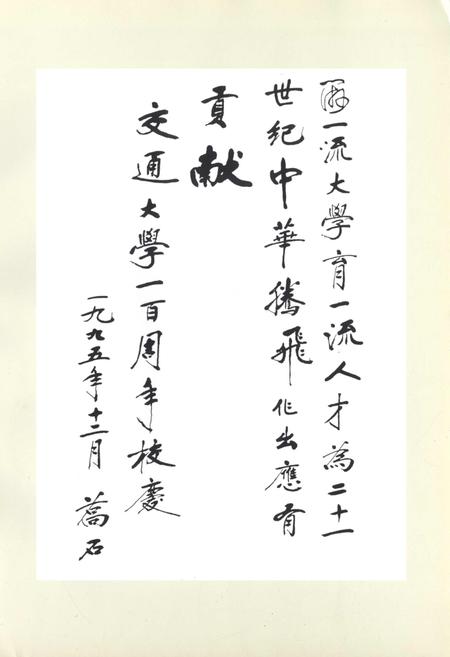 一流大學育一流人才為二十一
世紀中華騰飛作出應有
貢献
交通大學一百周年校慶
一九九五年十二月 喬石